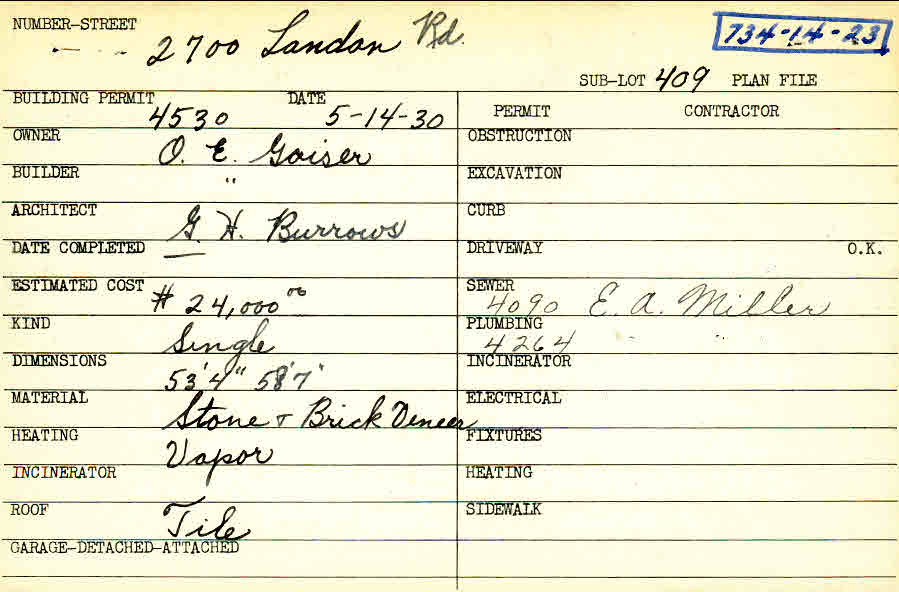 NUMBER-STREET
2700 Landon Rd.
734-14-23
SUB-LOT 409 PLAN FILE
BUILDING PERMIT DATE
4530 5-14-30
PERMIT CONTRACTOR
OWNER
O. E. Gaiser
OBSTRUCTION
BUILDER
"
EXCAVATION
ARCHITECT
G. H. Burrows
CURB
DATE COMPLETED
DRIVEWAY O.K.
ESTIMATED COST
# 24,000 00
SEWER
4090 E. A. Miller
KIND
Single
PLUMBING
4264 " "
DIMENSIONS
53'4" 58'7'
INCINERATOR
MATERIAL
Stone + Brick Veneer
ELECTRICAL
HEATING
Vapor
FIXTURES
INCINERATOR
HEATING
ROOF
Tile
SIDEWALK
GARAGE-DETACHED-ATTACHED